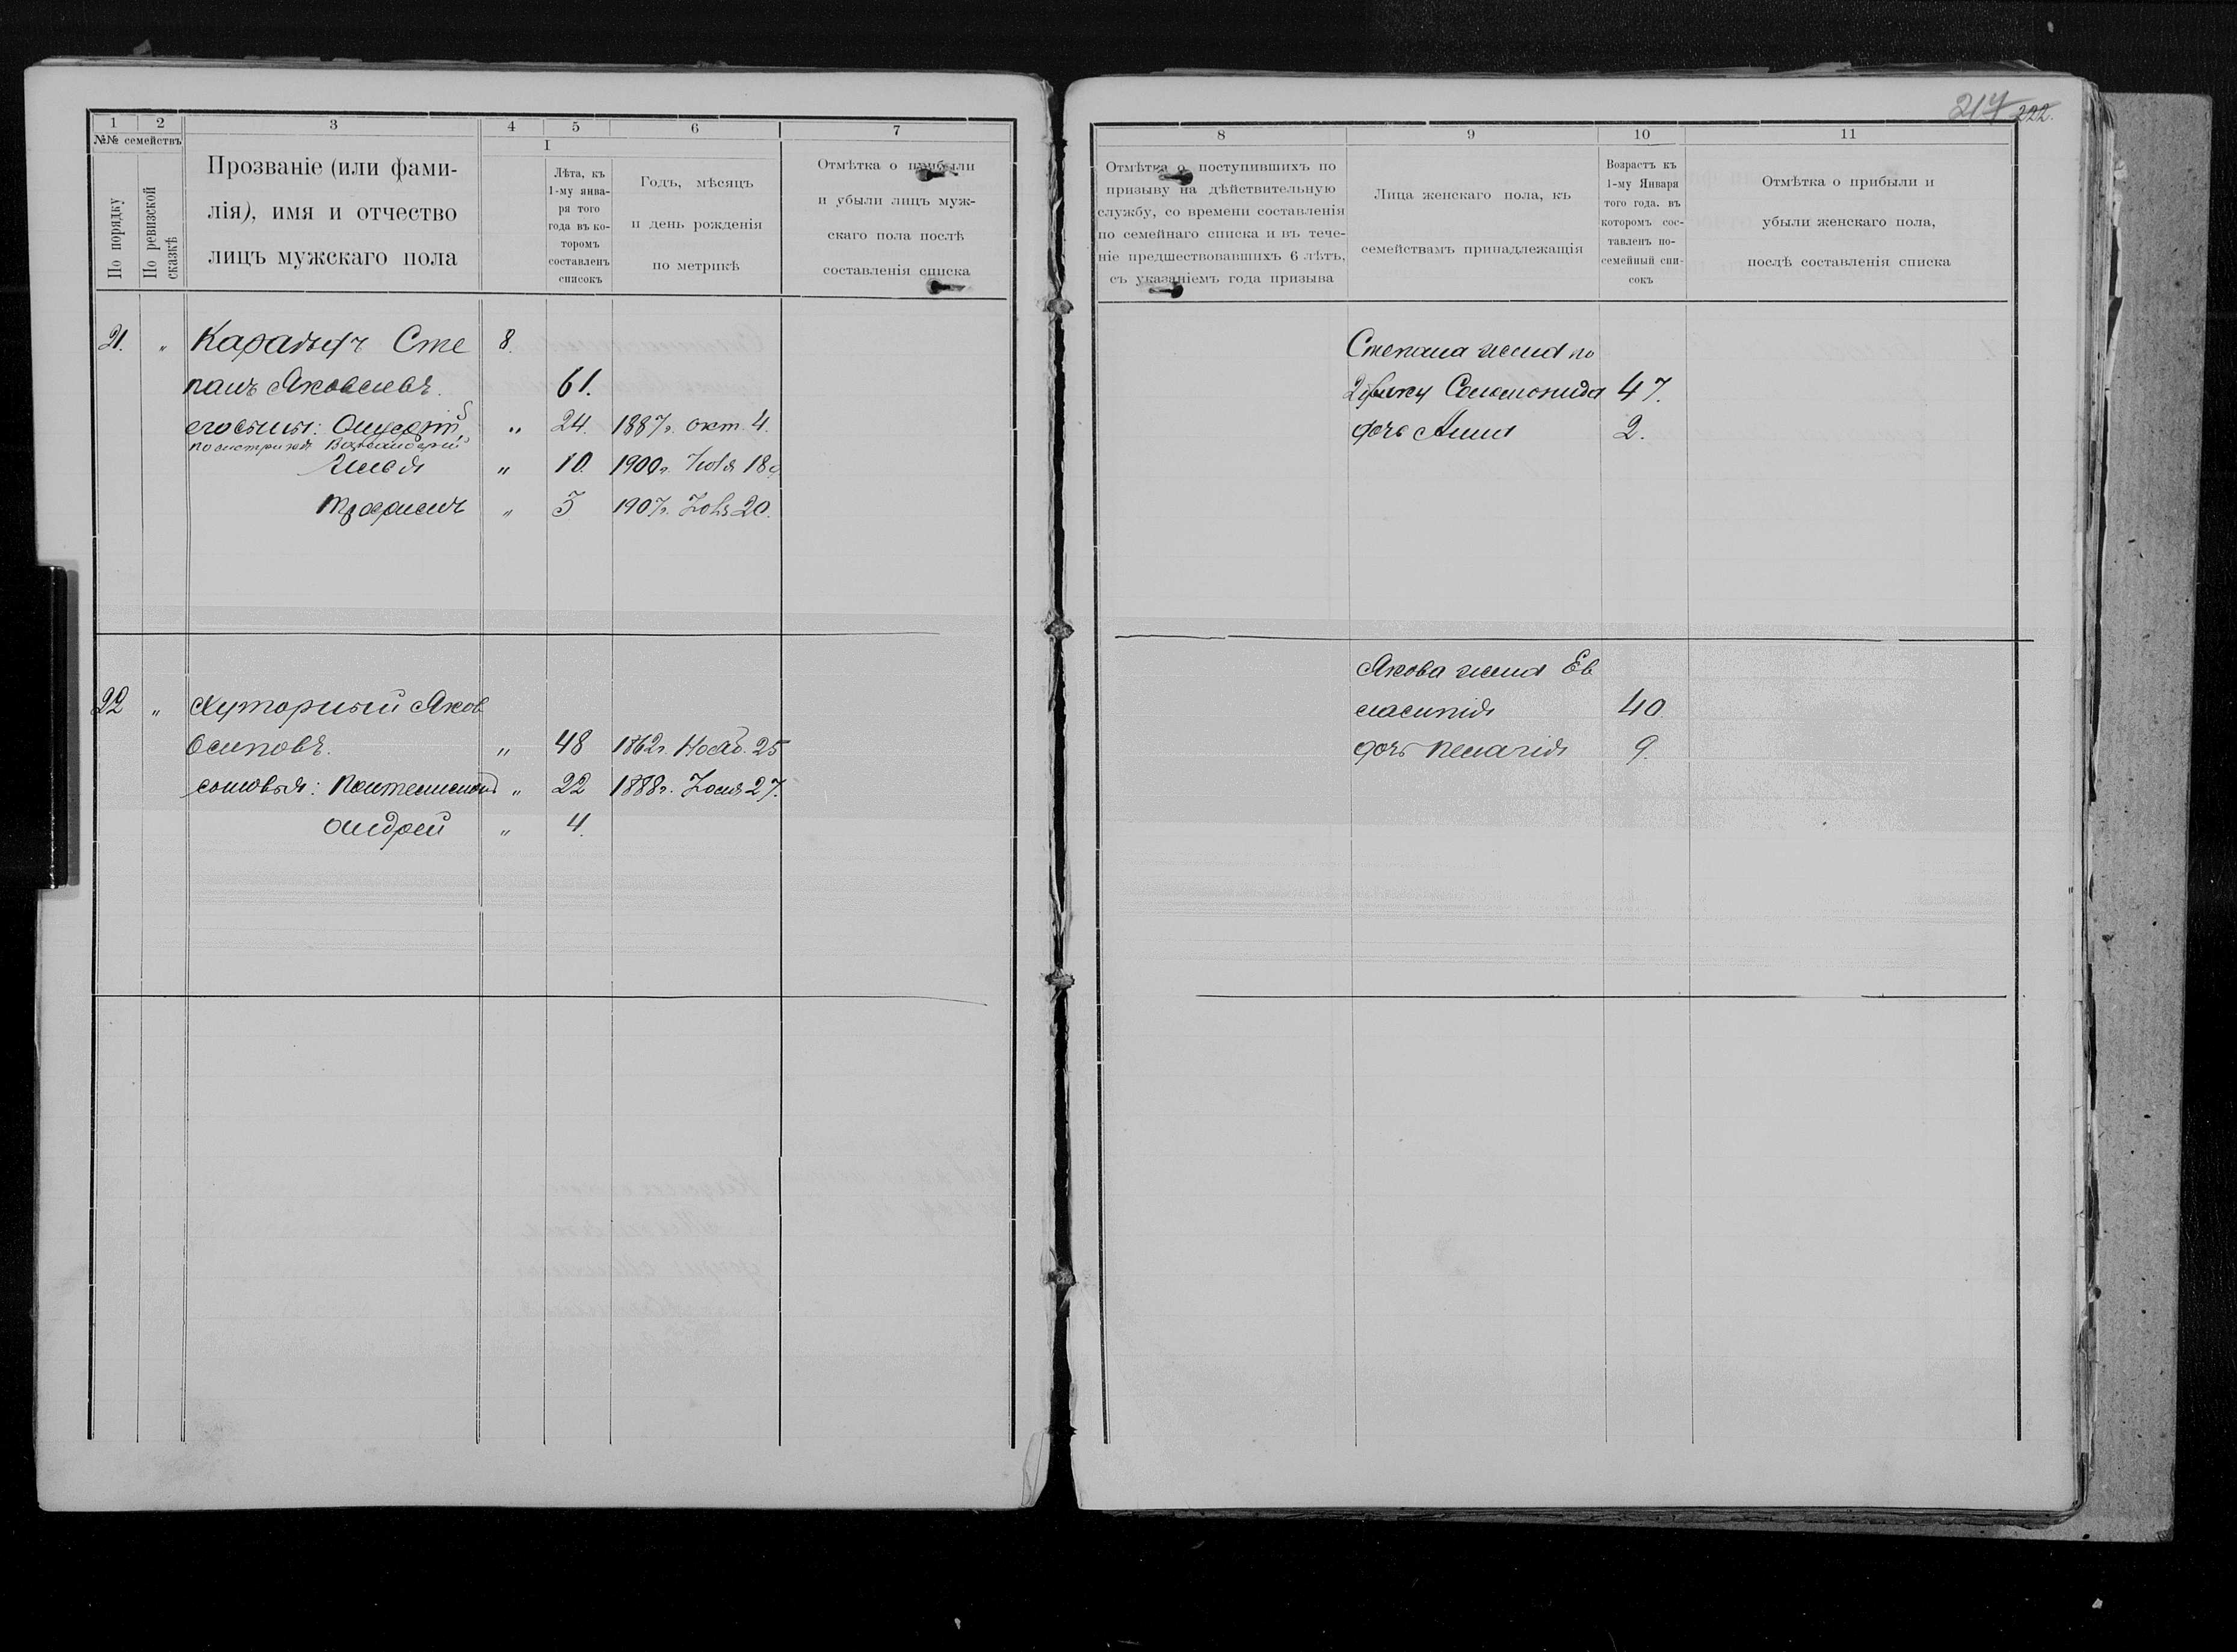 217 222.
1 2 3 4 5 6 7
№№ семействъ
По порядку
По ревизской сказкѣ
Прозваніе (или фами-
лія), имя и отчество
лицъ мужскаго пола
I
Лѣта, къ
1-му янва-
ря того
года въ ко-
торомъ
составленъ
списокъ
Годъ, мѣсяцъ
и день рожденія
по метрикѣ
Отмѣтка о прибыли
и убыли лицъ муж-
скаго пола послѣ
составленія списка
21. „ Сте 8.
панъ Яковлевъ. 61.
его сыны: „ 24. 1887г. окт. 4.
Илья „ 10. 1900г. 18
Трофимъ „ 3 1907г. 20.
22 „ Хуторный Яков
Осиповъ. „ 48 1862г. Нояб. 25
сыновья: Пантелимонъ „ 22 1888г. Іюля 27.
Андрей „ 4.
8 9 10 11
Отмѣтка о поступившихъ по
призыву на дѣйствительную
службу, со времени составленія
по семейнаго списка и въ тече-
ніе предшествовавшихъ 6 лѣтъ,
съ указаніемъ года призыва
Лица женскаго пола, къ
семействамъ принадлежащія
Возрастъ къ
1-му Января
того года, въ
которомъ сос-
тавленъ по-
семейный спи-
сокъ
Отмѣтка о прибыли и
убыли женскаго пола,
послѣ составленія списка
Степана жена по
2 браку Соломонида 47.
дочь Анна 2.
Якова жена Ев
лампія 40
дочь Пелагія 9.